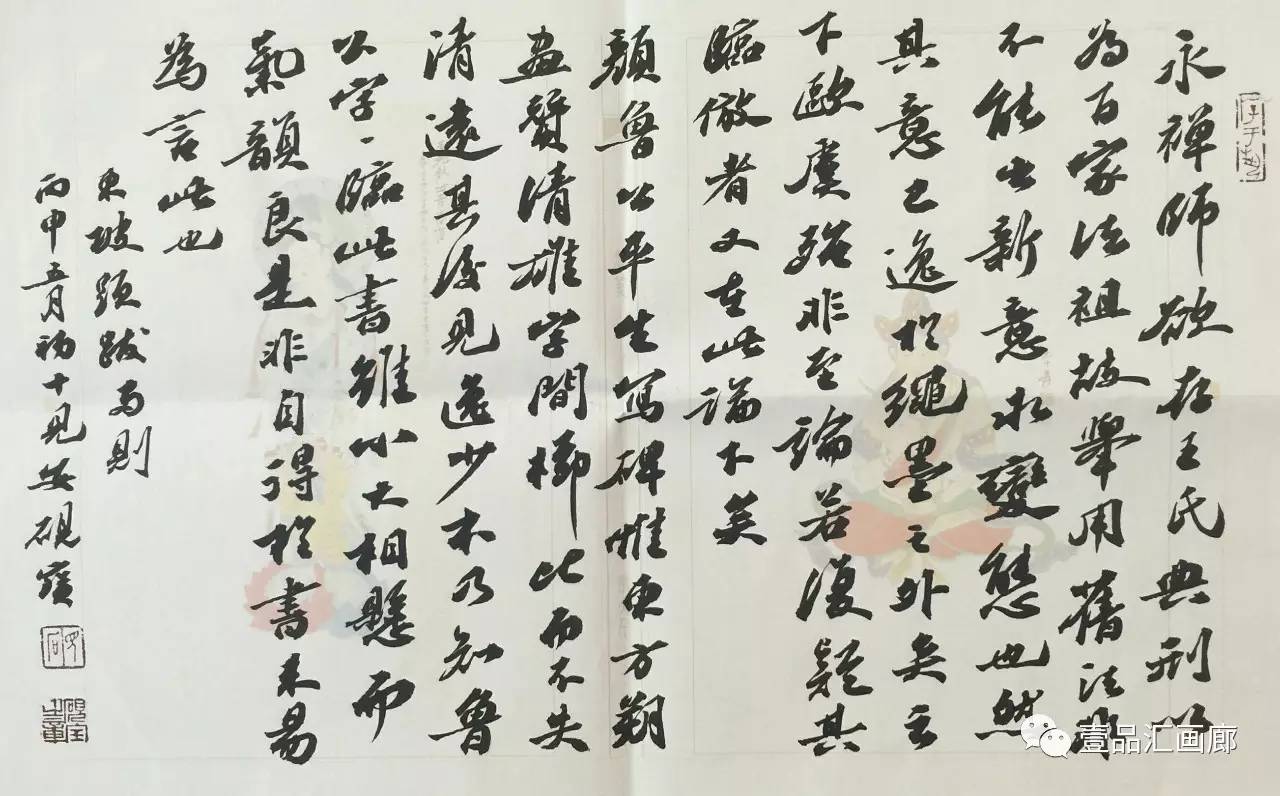 永禅師欲存王氏典刑以
为百家法祖故舉用舊法非
不能出新意求變態也然
其意已逸於繩墨之外矣云
下歐虞殆非至論若復疑其
臨倣者又在此論下矣
顔魯公平生寫碑惟東方朔
畫賛清雄字間櫛比而不失
清遠其後見逸少本乃知魯
公字〻臨此書雖小大相懸而
氣韻良是非自得於書未易
為言此也
東坡題跋兩則
丙申五月初十見安硯寳
壹品汇画廊